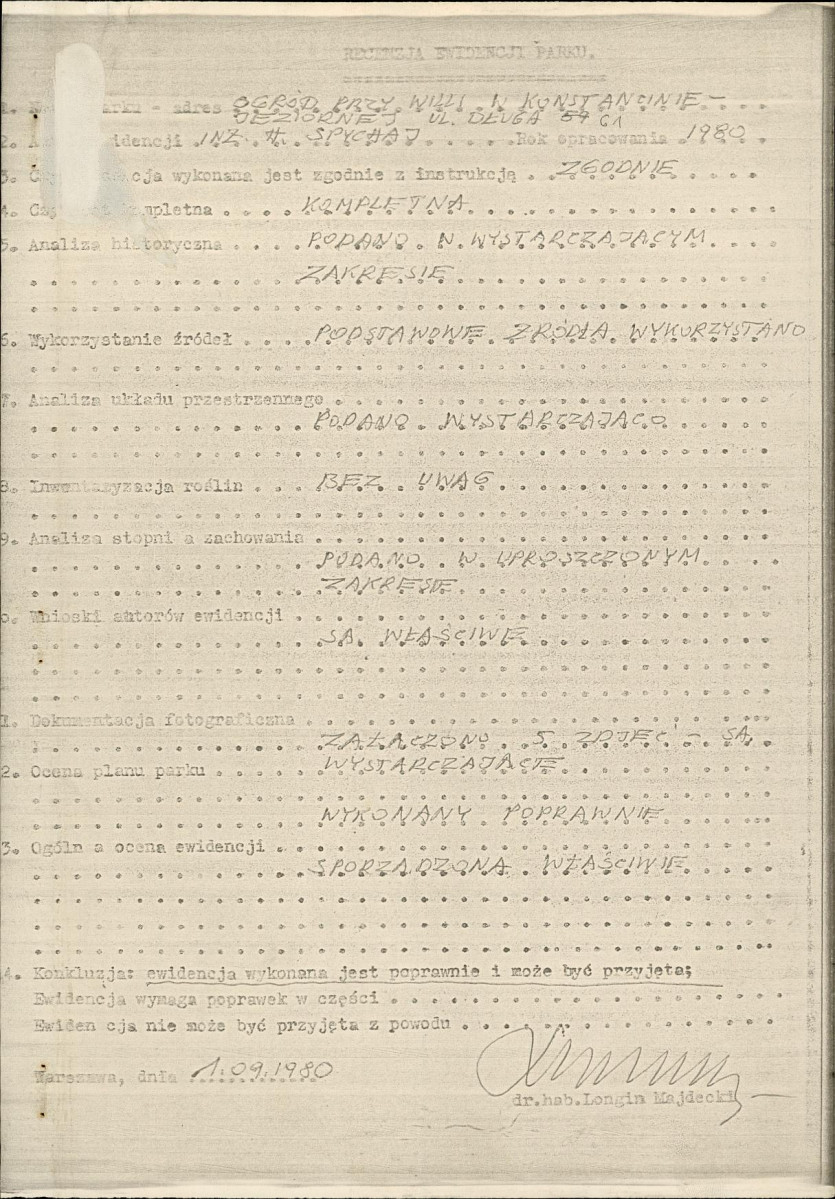 RECENZJA EWIDENCJI PARKU.
1. parku - adres OGRÓD PRZY WILLI W KONSTANCINIE -
JEZIORNEJ UL. DŁUGA
2. ewidencji INŻ. H. SPYCHAJ Rok opracowania 1980
3. wykonana jest zgodnie z instrukcją ZGODNIE
4. kompletna KOMPLETNA
5. Analiza historyczna PODANO W WYSTARCZAJĄCYM
ZAKRESIE
6. Wykorzystanie źródeł PODSTAWOWE ŹRÓDŁA WYKORZYSTANO
7. Analiza układu przestrzennego
PODANO WYSTARCZAJĄCO
8. Inwentaryzacja roślin BEZ UWAG
9. Analiza stopni a zachowania
PODANO W UPROSZCZONYM
ZAKRESIE
o. Wnioski autorów ewidencji
SĄ WŁAŚCIWE
1. Dokumentacja fotograficzna
ZAŁĄCZONO 5 ZDJĘĆ - SĄ
2. Ocena planu parku WYSTARCZAJĄCE
WYKONANY POPRAWNIE
3. Ogóln a ocena ewidencji
SPORZĄDZONA WŁAŚCIWIE
4. Konkluzja: ewidencja wykonana jest poprawnie i może być przyjęta;
Ewidencja wymaga poprawek w części
Ewiden cja nie może być przyjęta z powodu
Warszawa, dnia 1.09.1980
dr.hab.Longin Majdecki